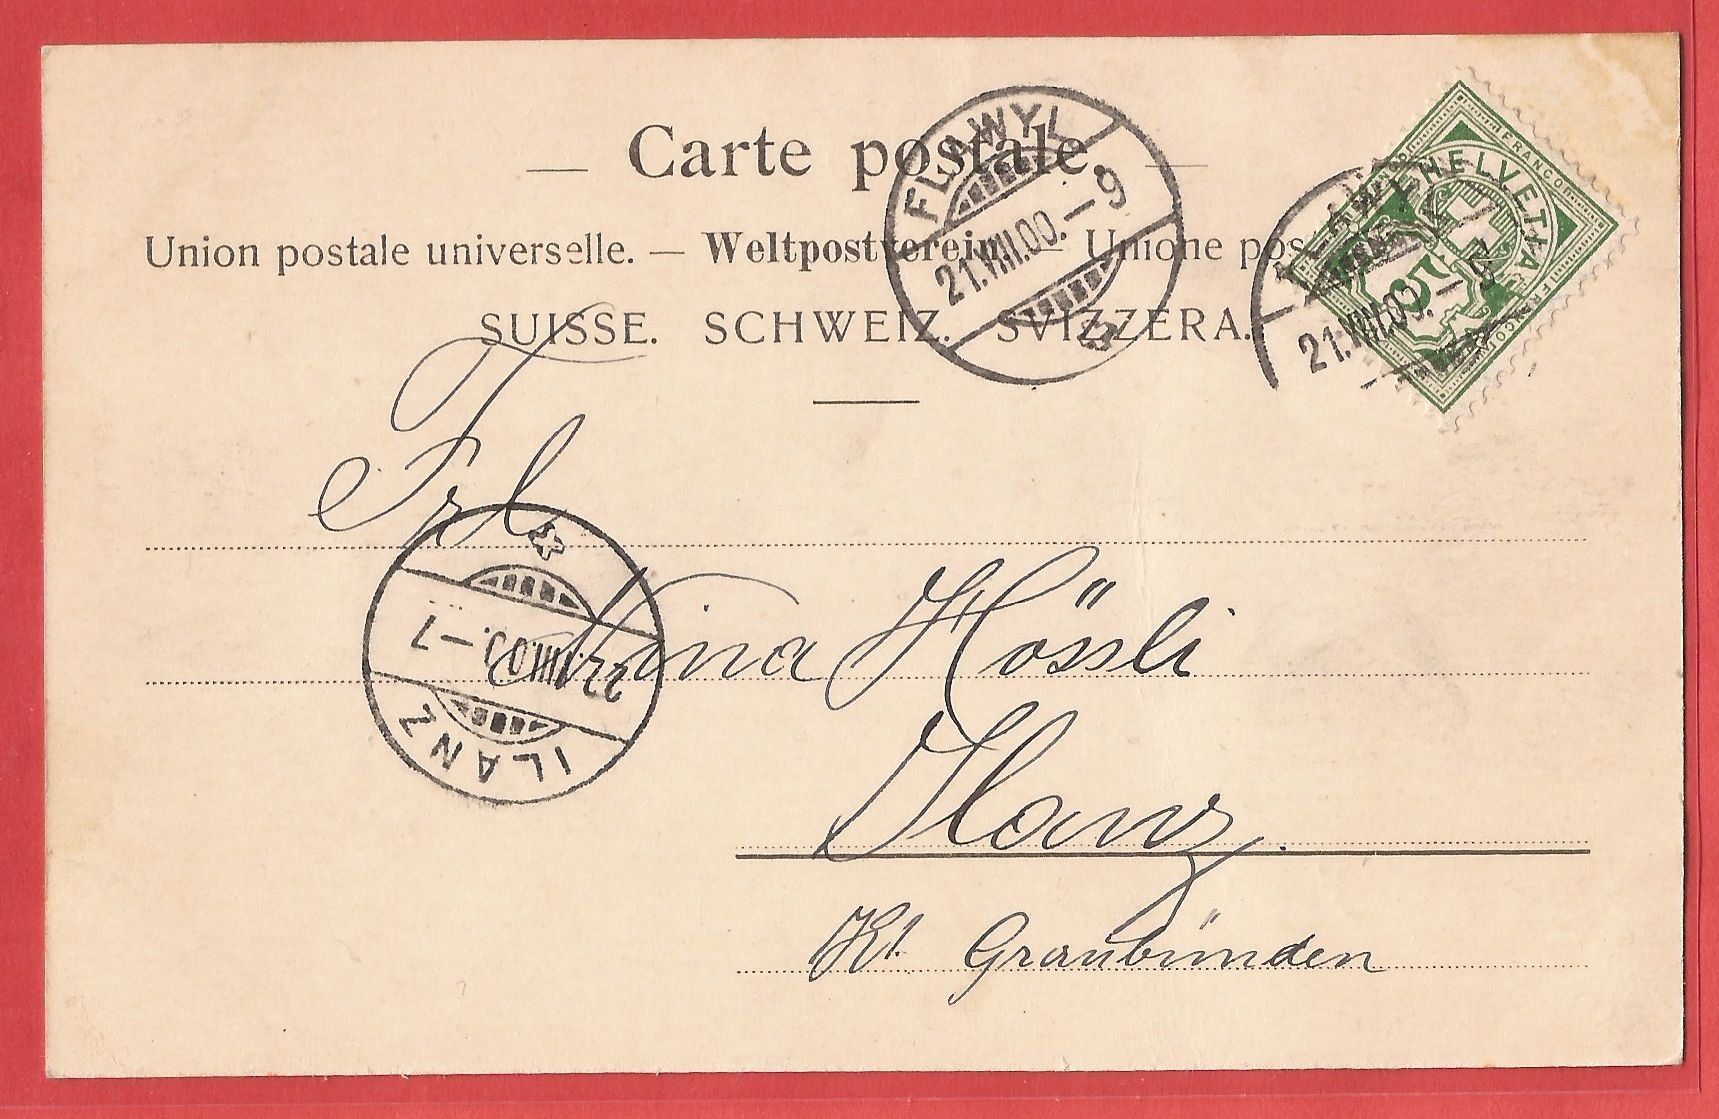 — Carte postale. —
Union postale universelle. — Weltpostverein — Unione pos
SUISSE. SCHWEIZ. SVIZZERA.
FLAWYL
21.VIII.00.–9
FLAWYL
21.VIII.00.–9
HELVETIA
FRANCO
FRANCO
5
Frl.
Nina Hössli
Ilanz.
Kt. Graubünden
ILANZ
22.VIII.00.–7